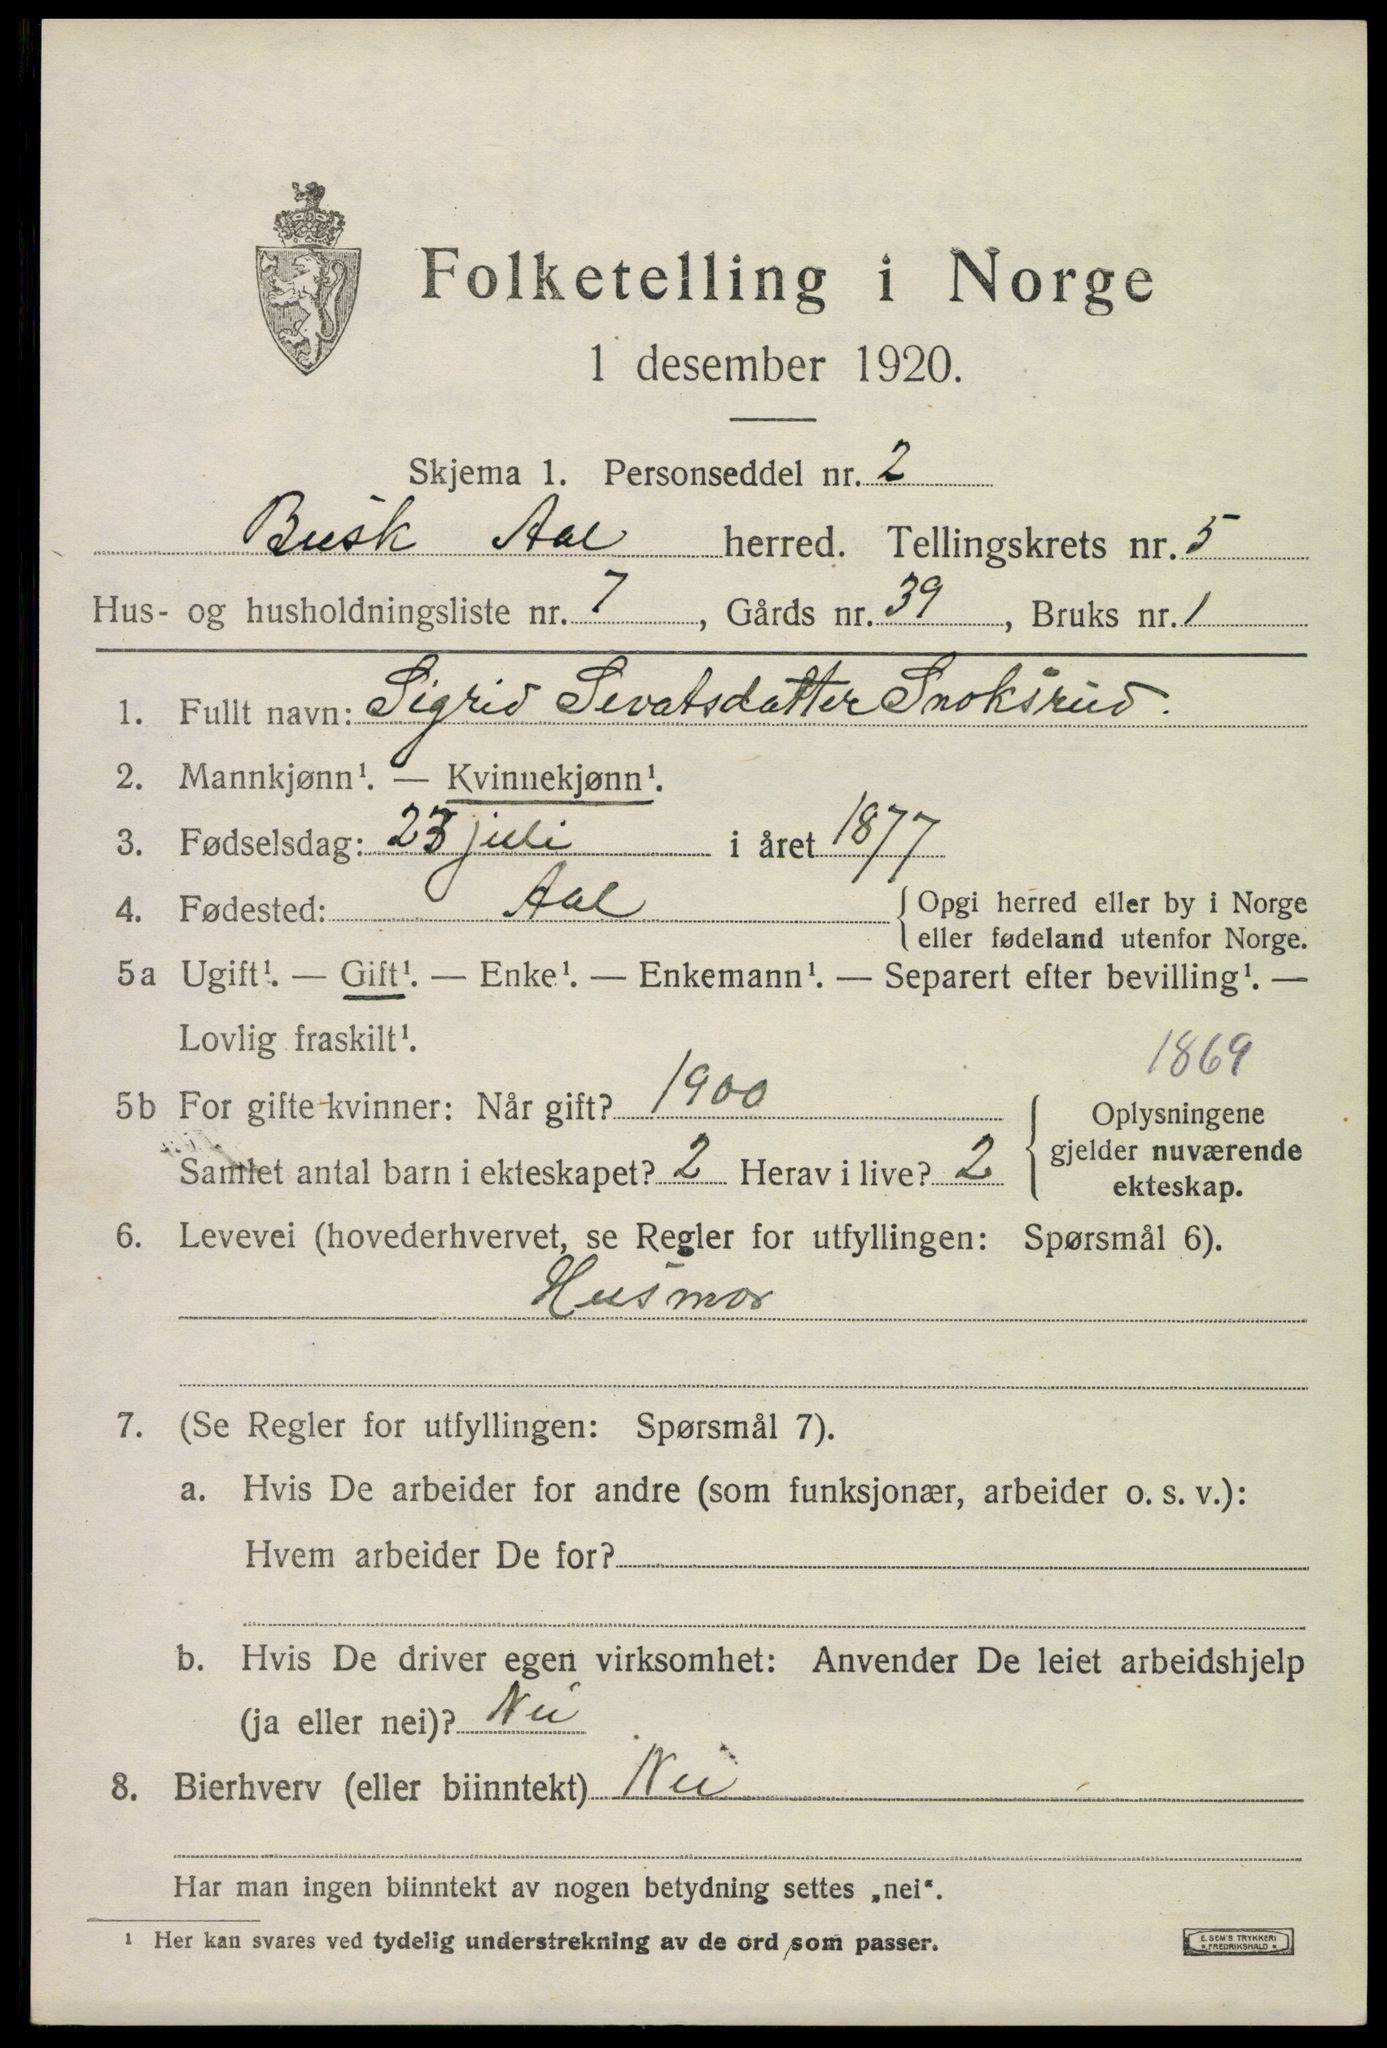 Folketelling i Norge
1 desember 1920.
Skjema 1. Personseddel nr. 2
Busk Aal herred. Tellingskrets nr. 5
Hus- og husholdningsliste nr. 7, Gårds nr. 39, Bruks nr. 1
1. Fullt navn: Sigrid Sevatsdatter Snoksrud.
2. Mannkjønn¹. — Kvinnekjønn¹.
3. Fødselsdag: 23 juli i året 1877
4. Fødested: Aal {Opgi herred eller by i Norge
eller fødeland utenfor Norge.
5a Ugift¹. — Gift¹. — Enke¹. — Enkemann¹. — Separert efter bevilling¹. —
Lovlig fraskilt¹.
1869
5b For gifte kvinner: Når gift? 1900
Samlet antal barn i ekteskapet? 2 Herav i live? 2
{Oplysningene
gjelder nuværende
ekteskap.
6. Levevei (hovederhvervet, se Regler for utfyllingen: Spørsmål 6).
Husmor
7. (Se Regler for utfyllingen: Spørsmål 7).
a. Hvis De arbeider for andre (som funksjonær, arbeider o. s. v.):
Hvem arbeider De for?
b. Hvis De driver egen virksomhet: Anvender De leiet arbeidshjelp
(ja eller nei)? Nei
8. Bierhverv (eller biinntekt) Nei
Har man ingen biinntekt av nogen betydning settes „nei“.
¹ Her kan svares ved tydelig understrekning av de ord som passer.
E. SEM'S TRYKKERI
* FREDRIKSHALD *